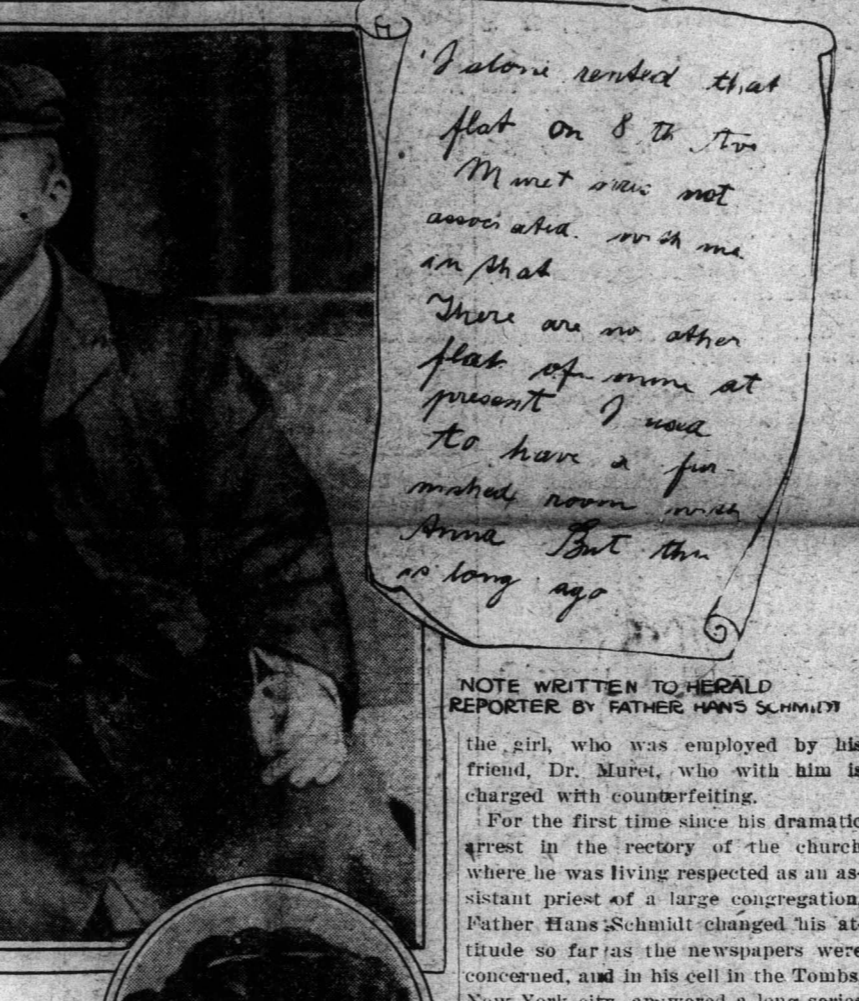 "I alone rented that
flat on 8 th Ave
Muret was not
associated with me
in that
There are no other
flat of mine at
present I used
to have a fur-
nished room with
Anna But this
is long ago
NOTE WRITTEN TO HERALD
REPORTER BY FATHER HANS SCHMIDT
the girl, who was employed by his
friend, Dr. Muret, who with him is
charged with counterfeiting.
For the first time since his dramatic
arrest in the rectory of the church
where he was living respected as an as-
sistant priest of a large congregation,
Father Hans Schmidt changed his at-
titude so far as the newspapers were
concerned, and in his cell in the Tombs,
New York city, answered a long